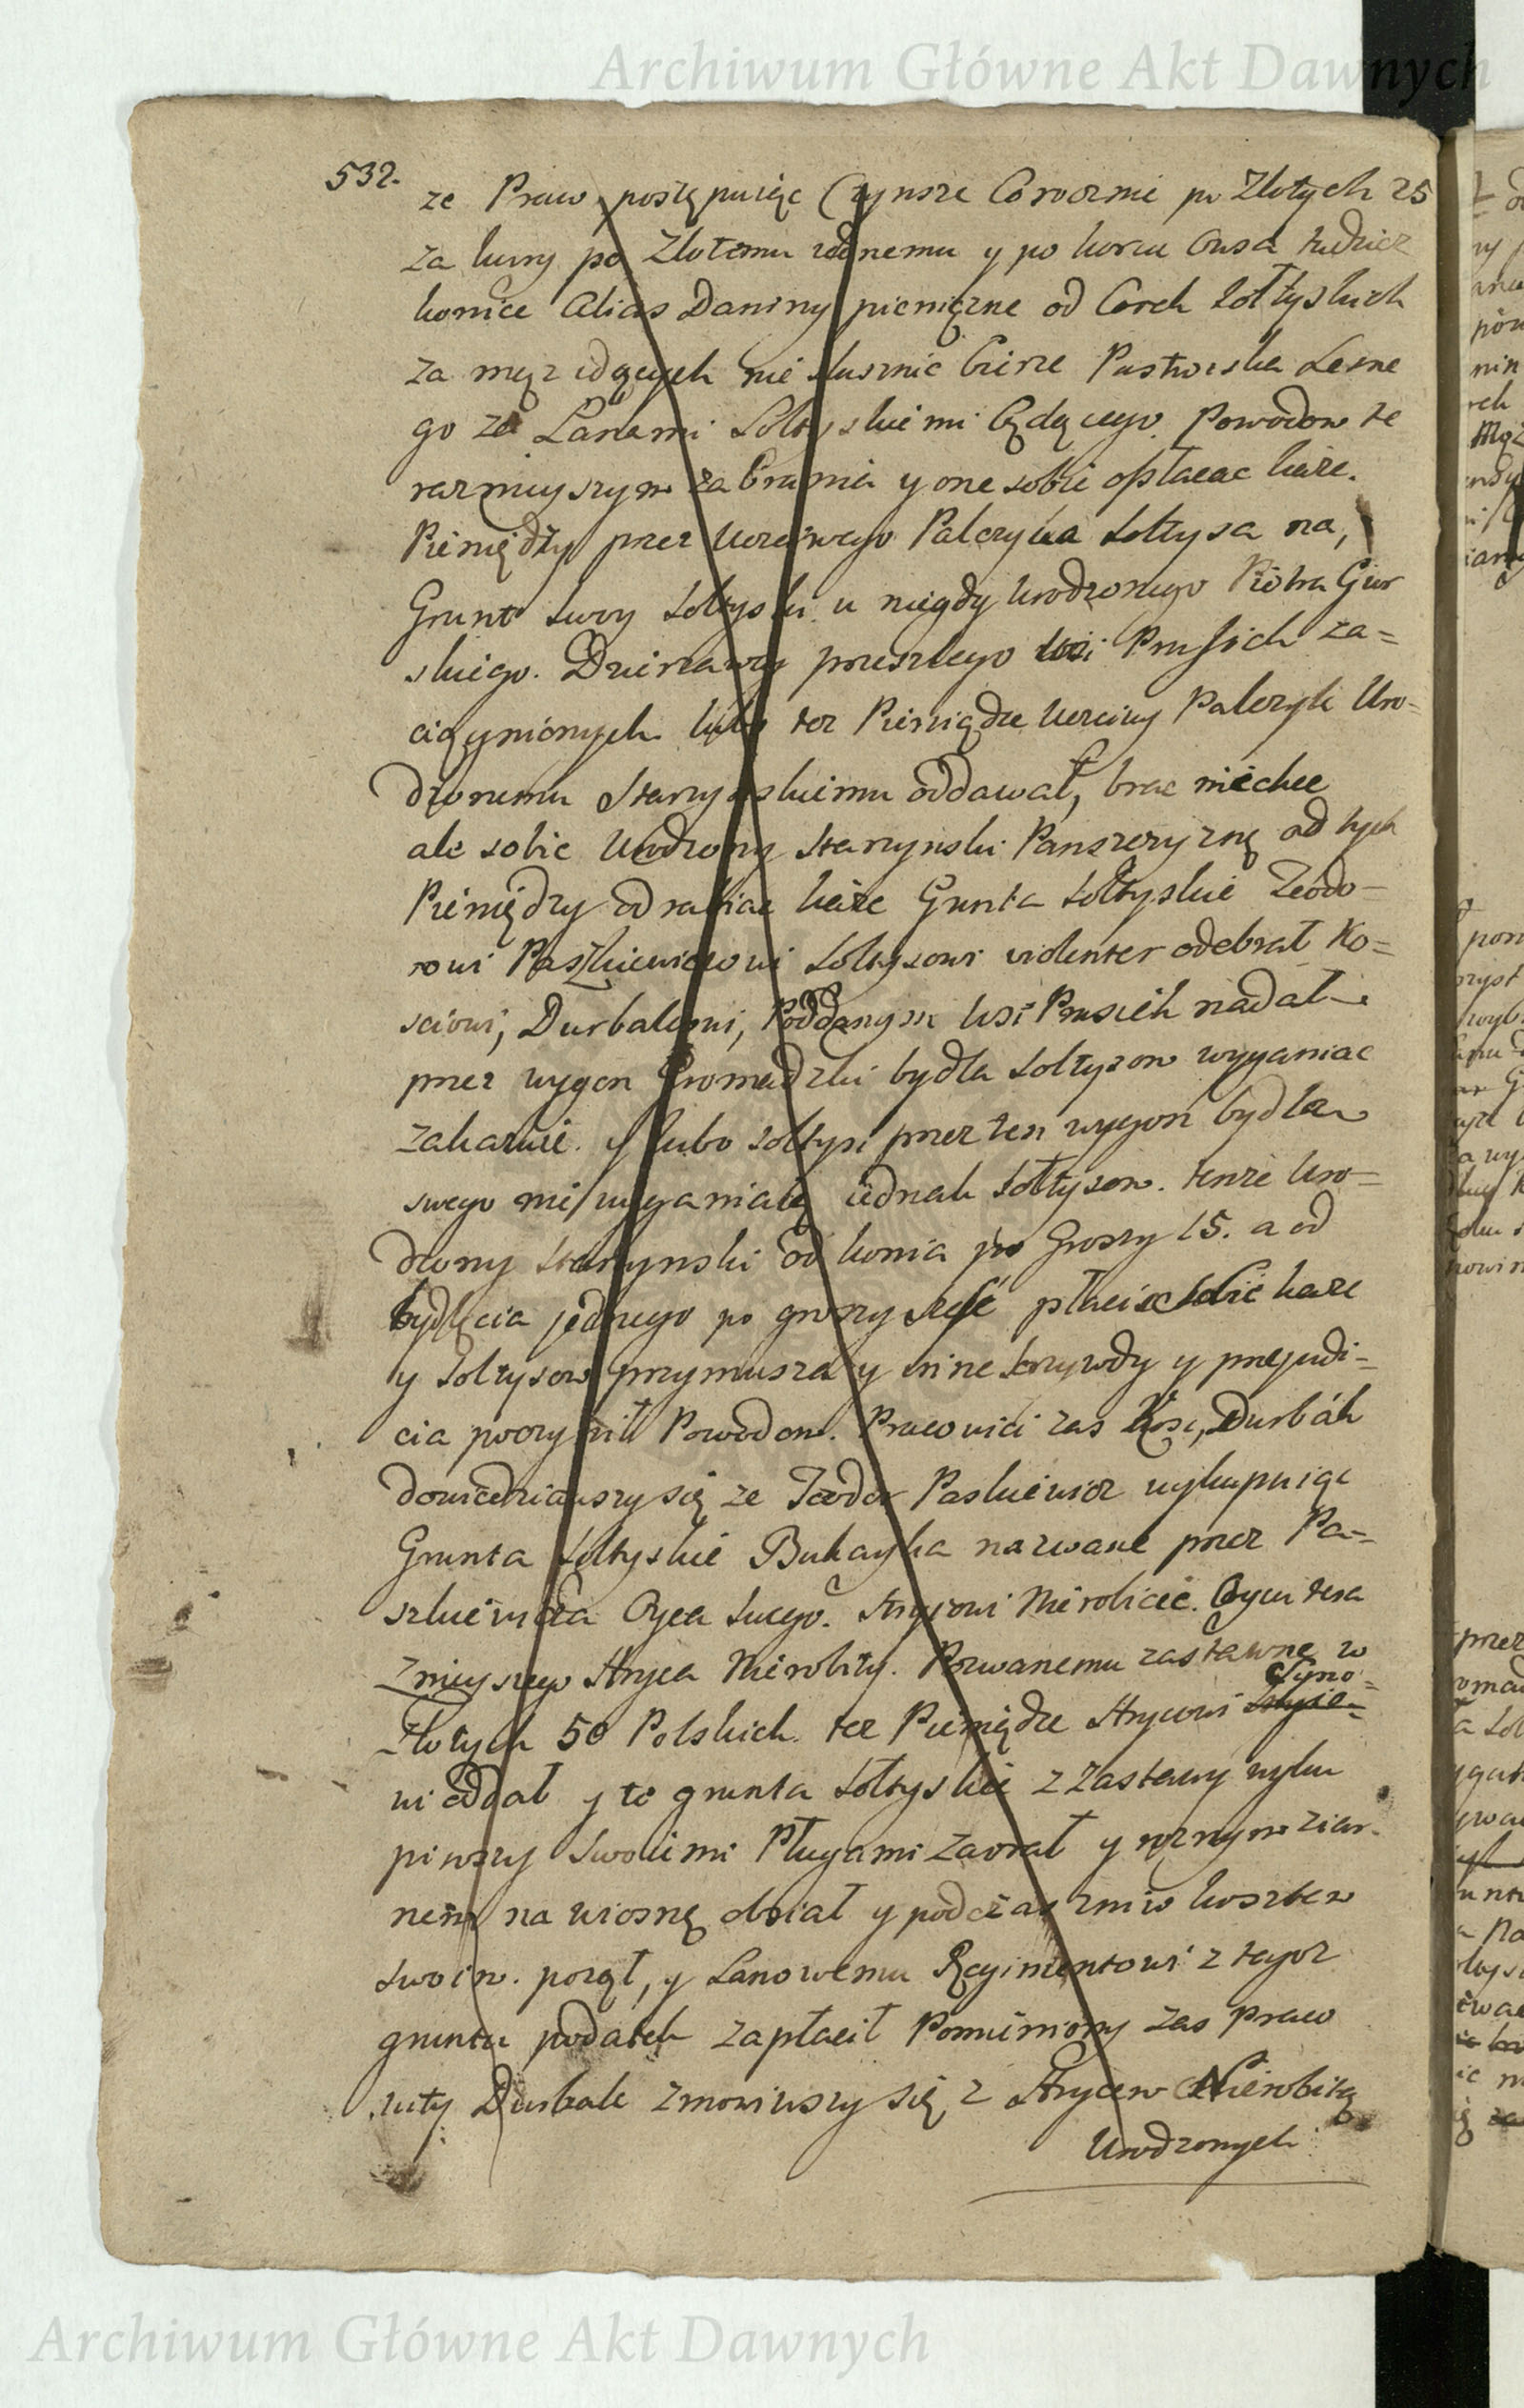 Archiwum Główne Akt Dawnych
532.
ze Praw, postępuiąc Czynsze Corocznie po Złotych 25
Za kury po Złotemu iednemu y po korcu Owsa tudziez
konice Alias Daniny pienięzne od Corek Sołtyskich
za męz idących nie słusznie bierze Pastwiska Lesne
go ze Łanami Sołtyskiemi będącego Powodow te
raznieyszym zabrania y one sobie opłacac każe.
Pieniędzy przez Uczciwego Palczyka Sołtysa na,
Grunt swoy Sołtyski u niegdy Urodzonego Piotra Gur
skiego. Dzierzawcy przeszłego wsi Prusich za=
ciągnionych lubo tez Pieniądze Uczciwy Palczyk Uro=
dzonemu Starzynskiemu oddawał, brac niechce
ale sobie Urodzony Starzynski Panszczyznę od tych
Pieniędzy odrabiac każe Grunta Sołtyskie Teodo=
rowi Paszkiewiczowi Sołtysowi violenter odebrał Ko=
sciowi, Durbakowi, Poddanym wsi Prusich nadał
przez wygon Gromadzki bydła Sołtysow wyganiac
zakazuie. y lubo Sołtysi przez ten wygon bydła
swego nie wyganiaią iednak Sołtysow. tenze Uro=
dzony Starzynski od konia po Groszy 15. a od
bydlęcia jednego po groszy szesc płacic sobie każe
y Sołtysow przymusza y inne krzywdy y prejudi=
cia poczynił Powodom. Pracowici zas Kosc, Durbak
dowiedziawszy się ze Teodor Paskiewicz wykupuiąc
Grunta Sołtyskie Bukayka nazwane przez Pa=
szkiewicza Oyca swego. Hrycowi Nierobicie. Oycu tera
znieyszego Hryca Nierobity. Pozwanemu zastawne w
Złotych 50 Polskich tez Pieniądze Hrycowi Syno=
wi oddał y te grunta Sołtyskie z Zastawy wyku
piwszy Swoiemi Pługami zaorał y roznym ziar=
nem na wiosnę obsiał y podczas zniw kosztem
swoim. pożął, y Łanowemu Regimentowi z tegoz
gruntu podatek zapłacił Pomieniony zas praco
wity Durbak zmowiwszy się z Hrycem Nierobitą
Urodzonych
Archiwum Główne Akt Dawnych